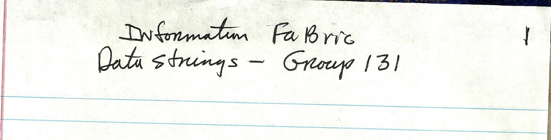 Information FaBric 1
Data Strings - Group 131